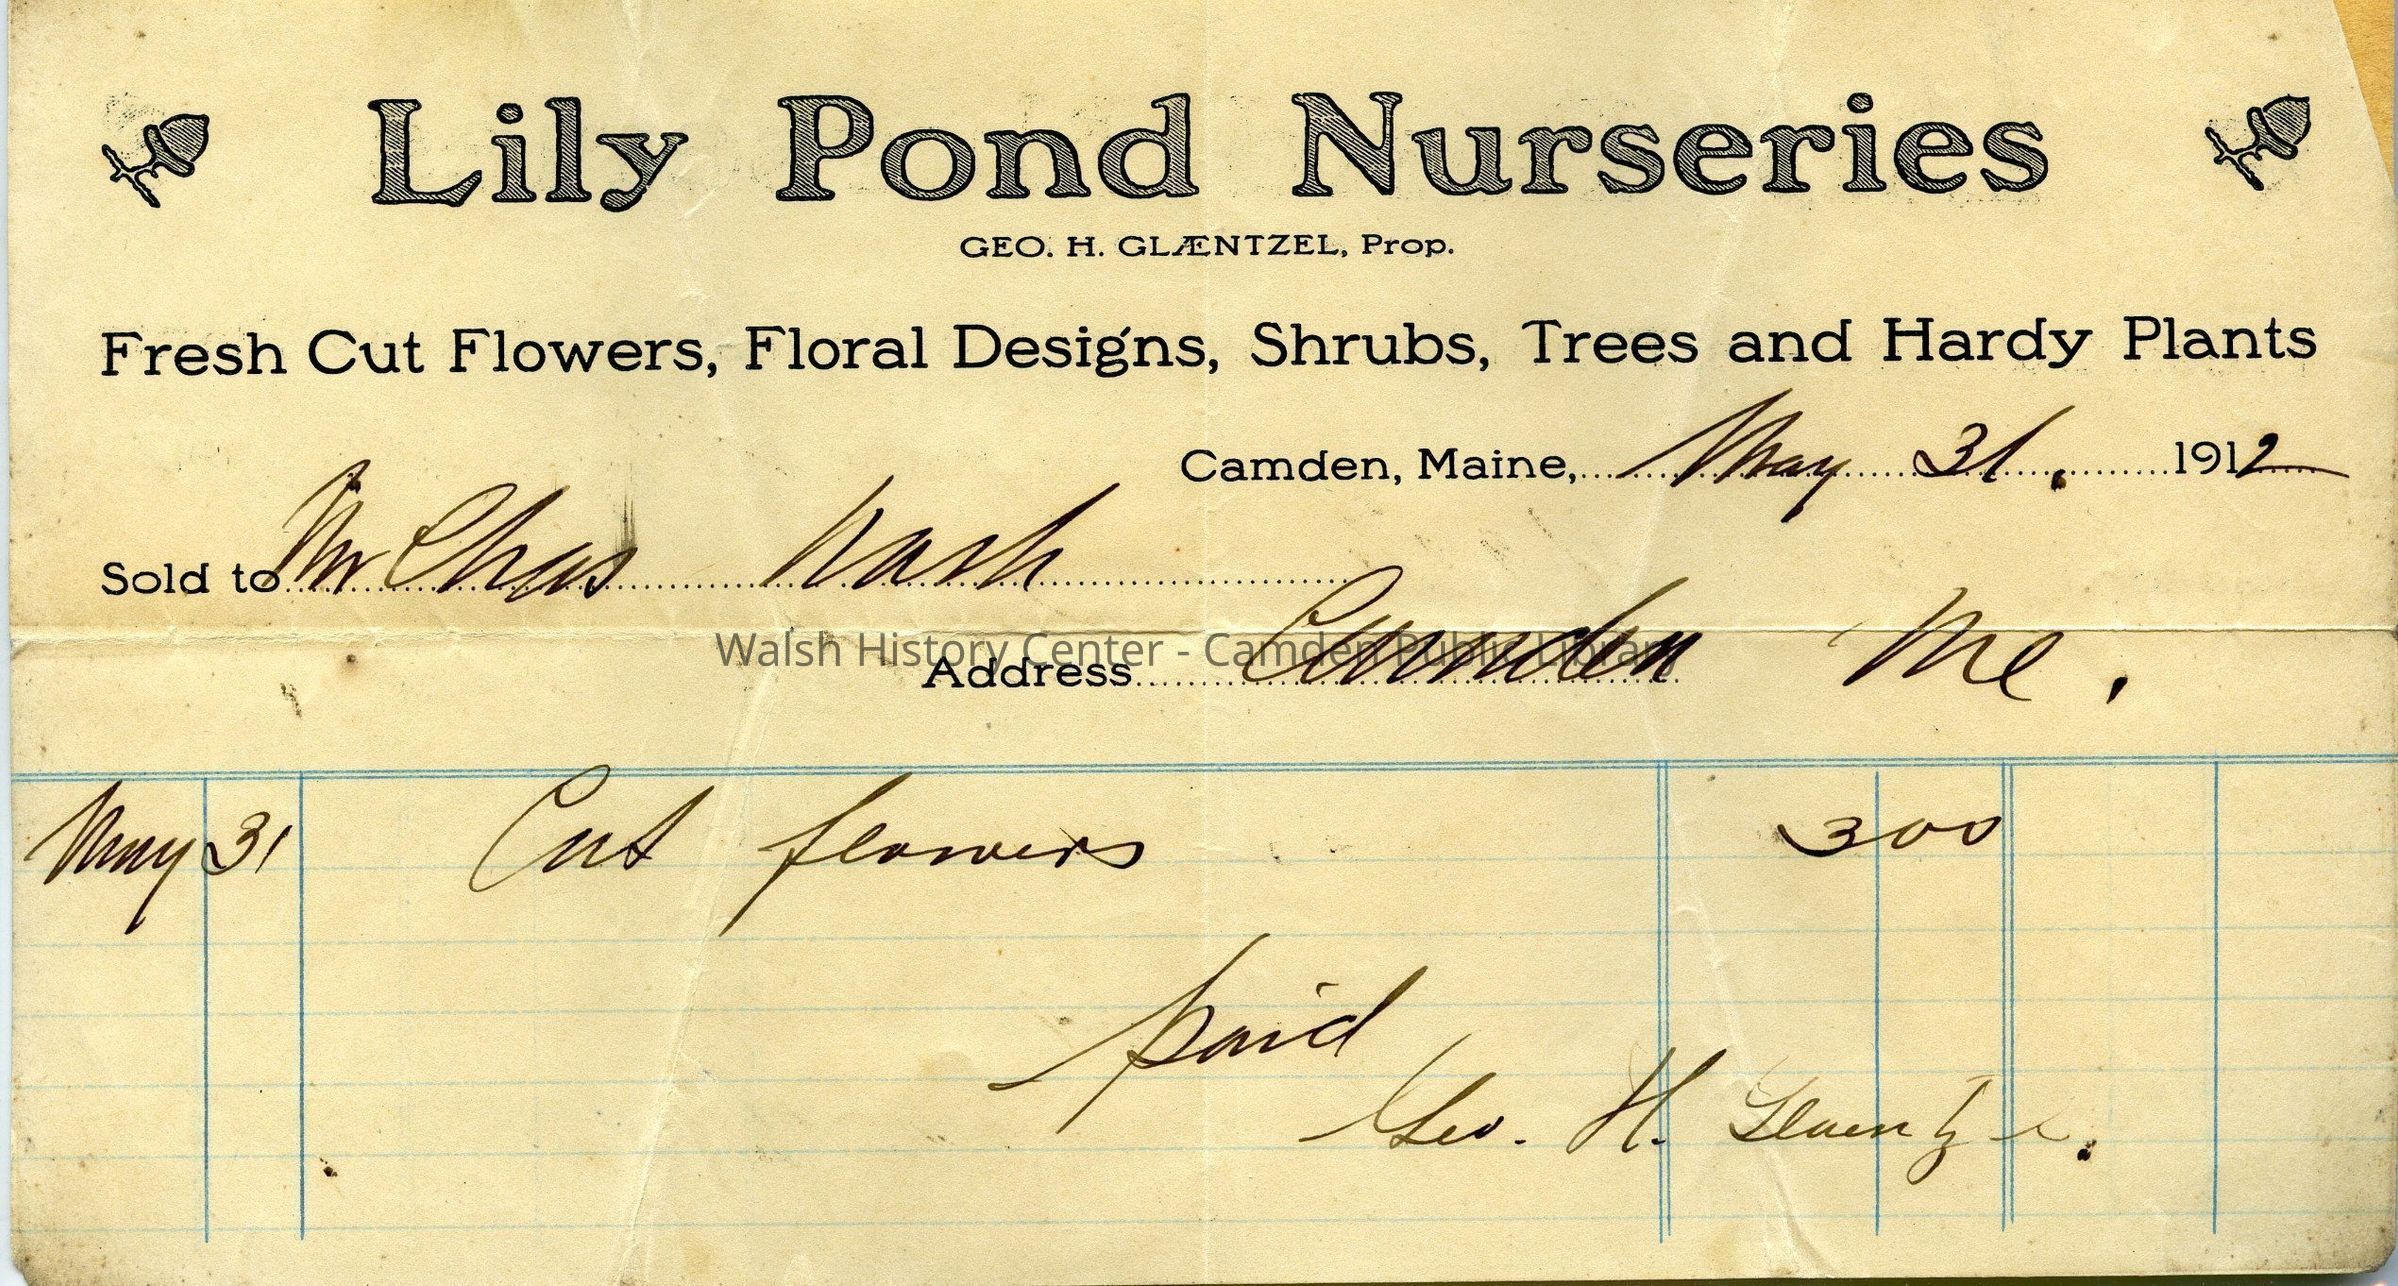 Lily Pond Nurseries
GEO. H. GLÆNTZEL, Prop.
Fresh Cut Flowers, Floral Designs, Shrubs, Trees and Hardy Plants
Camden, Maine, May 31. 1912
Sold to Mr Chas Nash
Walsh History Center - Camden Public Library
Address Camden Me.
May 31 Cut flowers 3 00
paid
Geo. H.